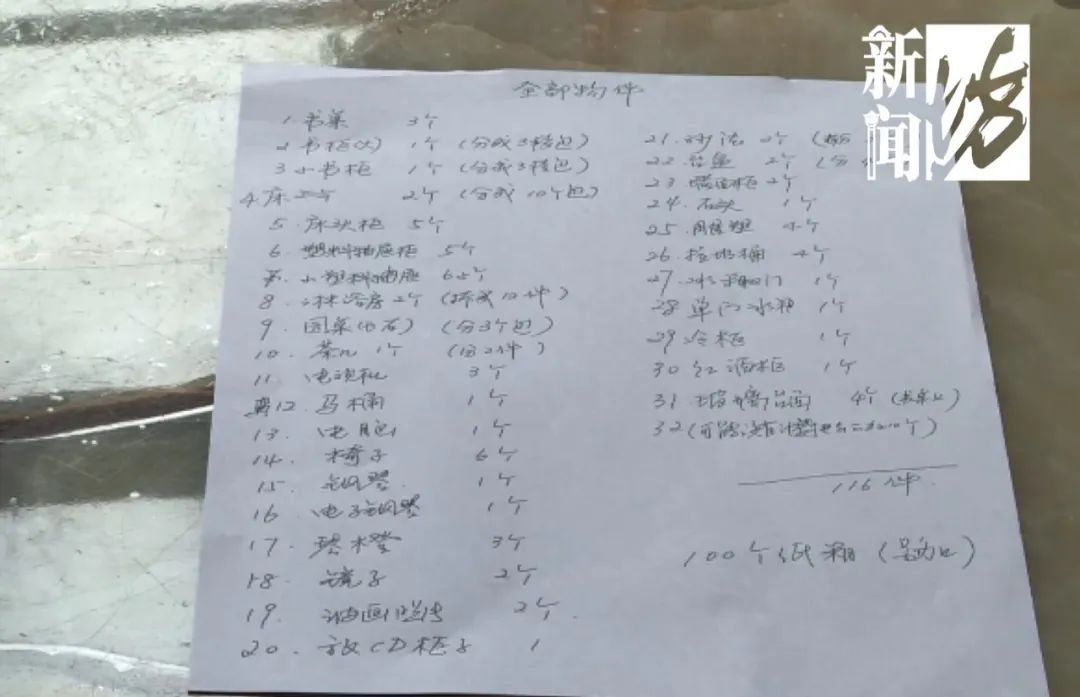 新闻坊
全部物件
1 书桌 3个
2 书柜(大) 1个 (分成3穜包)
3 小书柜 1个 (分成3穜包)
4. 床 2个 (分成10个包)
5. 床头柜 5个
6. 塑料抽屉柜 5个
小塑料抽屉 6个
8. 淋浴房 2个 (拆成10件)
9. 园桌(大石) (分3个包)
10. 茶几 1个 (分2件)
11. 电视机 3个
12 马桶 1个
13. 电脑 1个
14. 椅子 6个
15. 钢琴 1个
16. 电子钢琴 1个
17. 琴凳 3个
18. 镜子 2个
19. 油画 2个
20. 放CD柜子 1
21. 沙法 2个
22. 2个 (分
23. 柜 2个
24. 石头 1个
25.
26. 垃圾桶 4个
27. 冰箱 门 1个
28 单门冰箱 1个
29 冷柜 1个
30 红酒柜 1个
31. 玻璃台面 4个
32 (可能没有计算
116件
100个纸箱